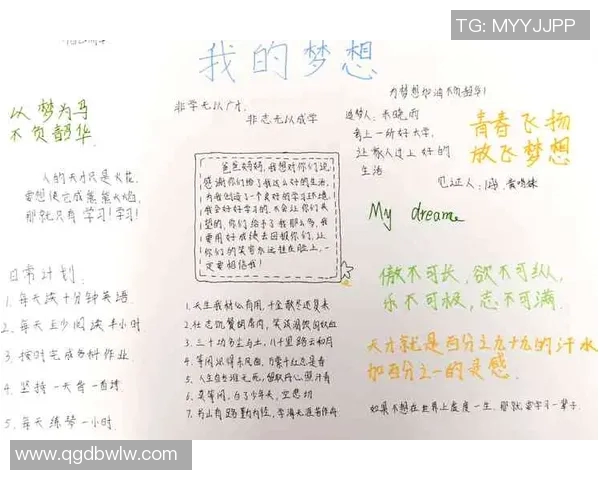 TG: MYYJJPP
我的梦想
以梦为马
不负韶华
非学无以广才
非志无以成学
为梦想加油不负韶华!
追梦人:
考上一所好大学,
让家人过上好的
生活
见证人:
青春飞扬
放飞梦想
人的天才只是火花,
要想使它成熊熊火焰,
那就只有学习!学习!
爸爸妈妈,我想对你们说,
感谢你们给了我这么好的生活,
为我创造了一个良好的学习环境,
我会好好学习的,不会让你们失
望的,你们给予了我那么多,我
要用好成绩去回报你们,让
你们的笑容永远挂在脸上,一
定要相信我!
My dream
日常计划
1、每天读十分钟英语.
2、每天至少阅读半小时
3、按时完成各科作业
4、坚持一天背一首诗
5、每天练琴一小时.
1、天生我材必有用,千金散尽还复来
2、壮志饥餐胡虏肉,笑谈渴饮匈奴血
3、三十功名尘与土,八千里路云和月
4、等闲识得东风面,万紫千红总是春
5、人生自古谁无死,留取丹心照汗青
6、莫等闲,白了少年头,空悲切
7、书山有路勤为径,学海无涯苦作舟
傲不可长,欲不可纵,
乐不可极,志不可满.
天才就是百分之九十九的汗水
加百分之一的灵感.
如果不想在世界上虚度一生,那就要学习一辈子.
www.qgdbwlw.com